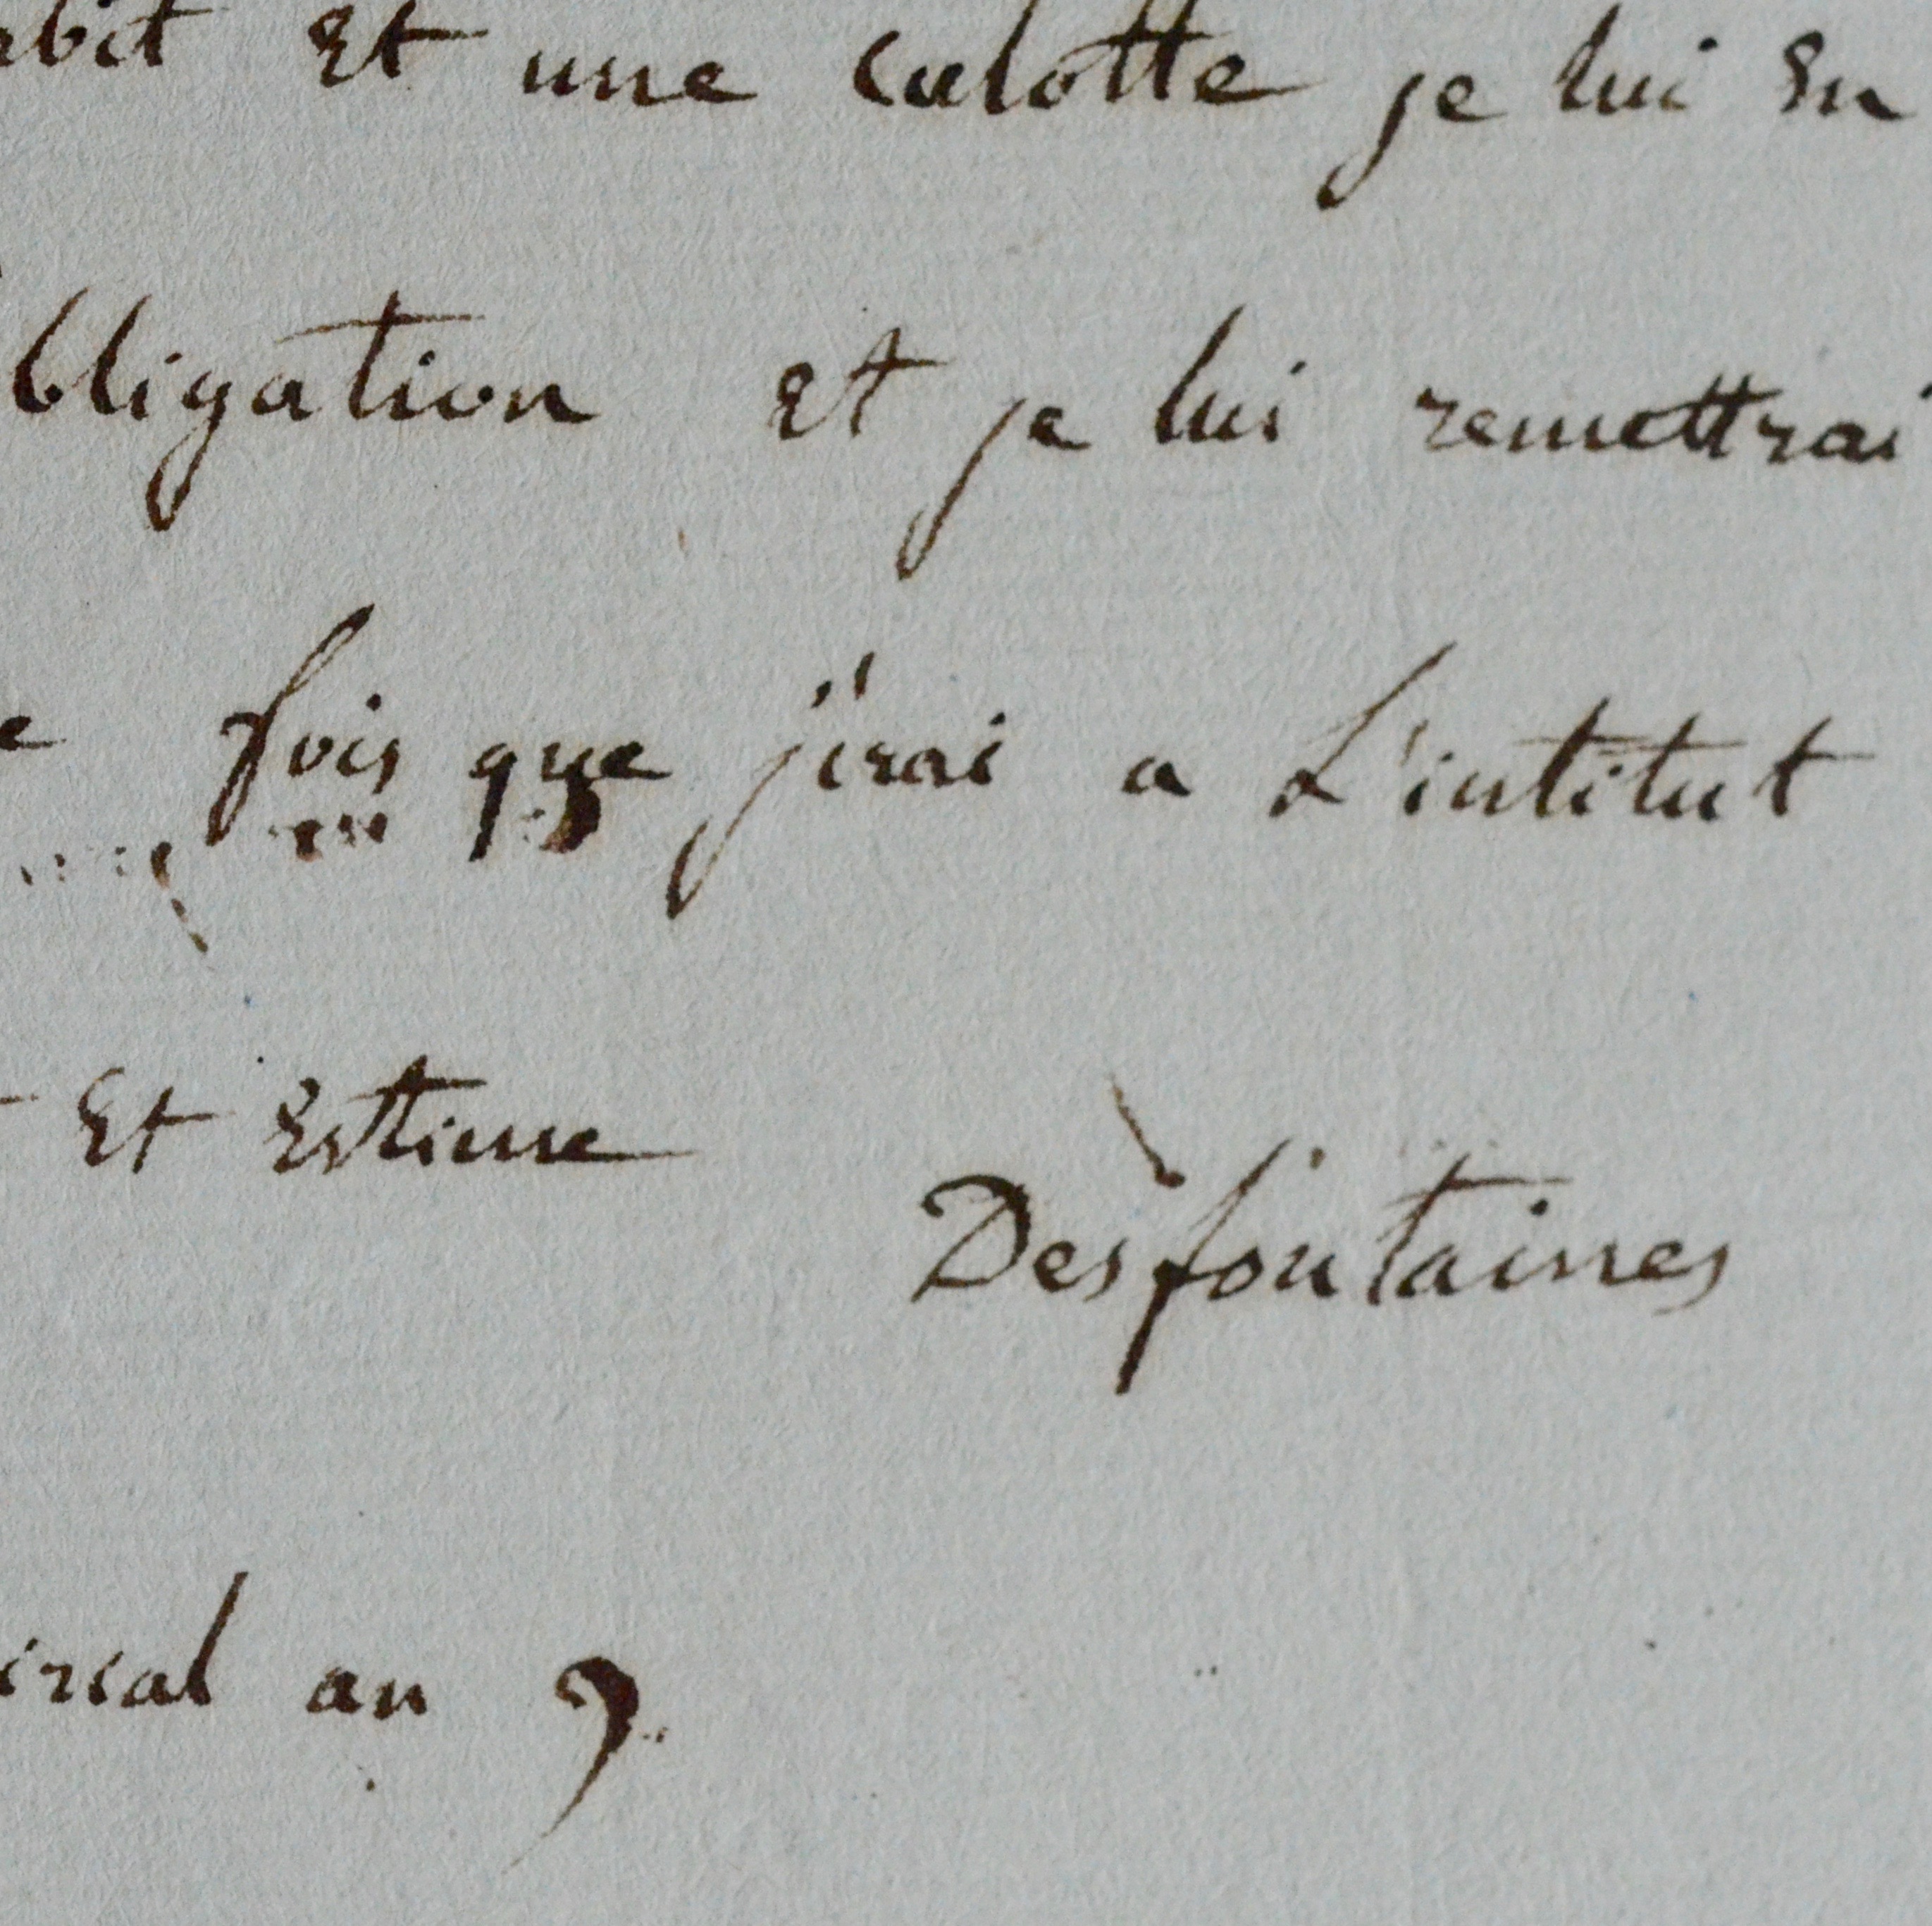 abit Et une culotte je lui En
bligation Et je lui remettrai
e fois que j'irai a L'intitut
Et Estime
Desfontaines
irial an 9